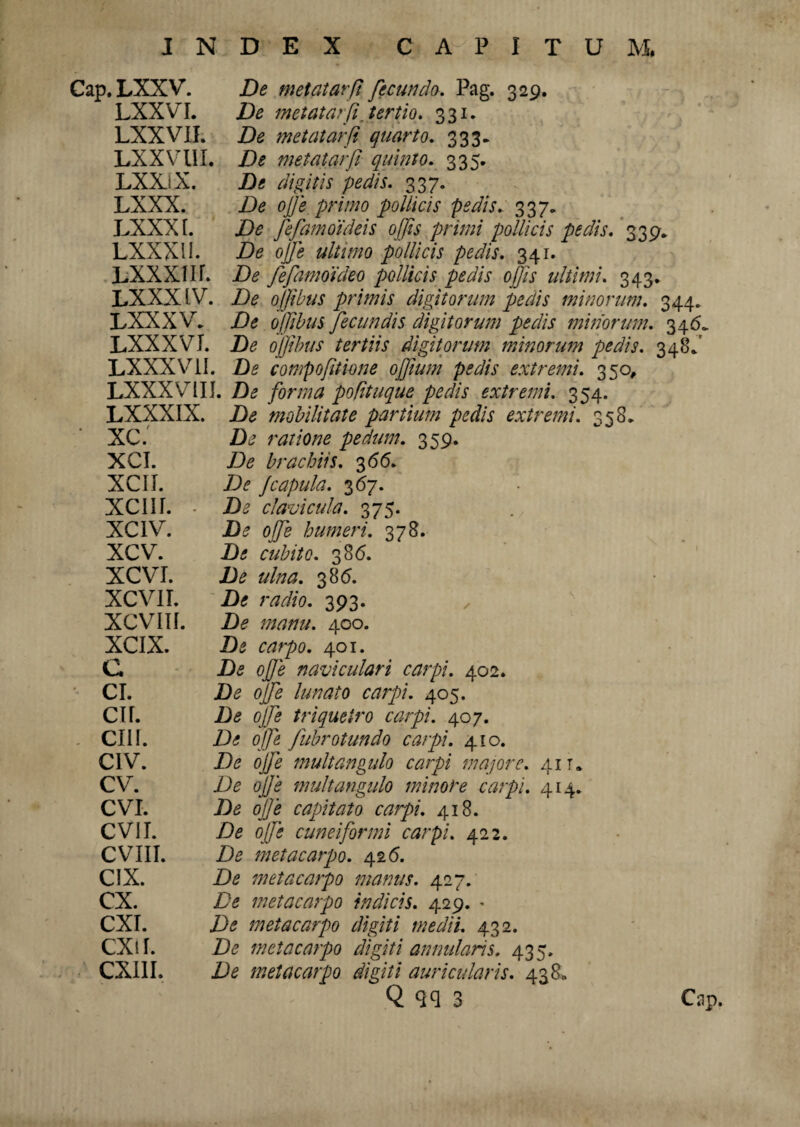 INDEX CAPITUM.
Cap. LXXV. De metatarſi ſecundo. Pag. 329.
LXXVI. De metatarſi tertio. 331.
LXXVII. De metatarſi quarto. 333.
LXXVIII. De metatarſi quinto. 335.
LXXIX. De digitis pedis. 337.
LXXX. De oſſe primo pollicis pedis. 337.
LXXXI. De ſeſamoïdeis oſſis primi pollicis pedis. 339.
LXXXII. De oſſe ultimo pollicis pedis. 341.
LXXXIII. De ſeſamoïdeo pollicis pedis oſſis ultimi. 343.
LXXXIV. De oſſibus primis digitorum pedis minorum. 344.
LXXXV. De oſſibus ſecundis digitorum pedis minorum. 346.
LXXXVI. De oſſibus tertiis digitorum minorum pedis. 348.
LXXXVII. De compoſitione oſſium pedis extremi. 350,
LXXXVIII. De forma poſituque pedis extremi. 354.
LXXXIX. De mobilitate partium pedis extremi. 358.
XC. De ratione pedum. 359.
XCI. De brachiis. 366.
XCII. De ſcapula. 367.
XCIII. De clavicula. 375.
XCIV. De oſſe humeri. 378.
XCV. De cubito. 386.
XCVI. De ulna. 386.
XCVII. De radio. 393.
XCVIII. De manu. 400.
XCIX. De carpo. 401.
C. De oſſe naviculari carpi. 402.
CI. De oſſe lunato carpi. 405.
CII. De oſſe triquetro carpi. 407.
CIII. De oſſe ſubrotundo carpi. 410.
CIV. De oſſe multangulo carpi majore. 411.
CV. De oſſe multangulo minore carpi. 414.
CVI. De oſſe capitato carpi. 418.
CVII. De oſſe cuneiformi carpi. 422.
CVIII. De metacarpo. 426.
CIX. De metacarpo manus. 427.
CX. De metacarpo indicis. 429.
CXI. De metacarpo digiti medii. 432.
CXII. De metacarpo digiti annularis. 435.
CXIII. De metacarpo digiti auricularis. 438.
Q qq 3 Cap.